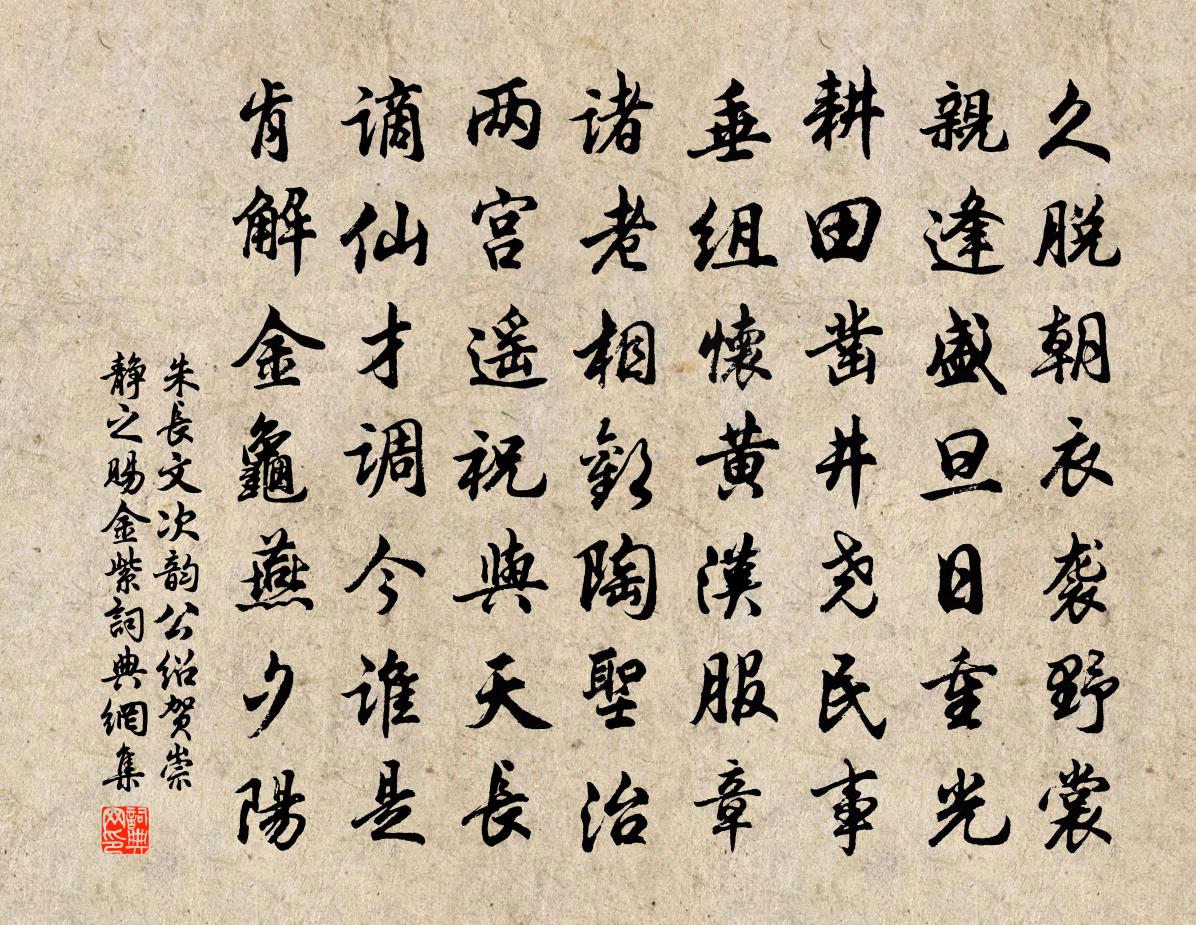 久脱朝衣袭野裳
親逢盛旦日重光
耕田凿井尧民事
垂组懷黄漢服章
诸老相歡陶聖治
两宫遥祝與天長
谪仙才调今谁是
肯解金龜燕夕陽
朱長文次韵公绍贺崇
静之赐金紫詞典網集
詞典網印